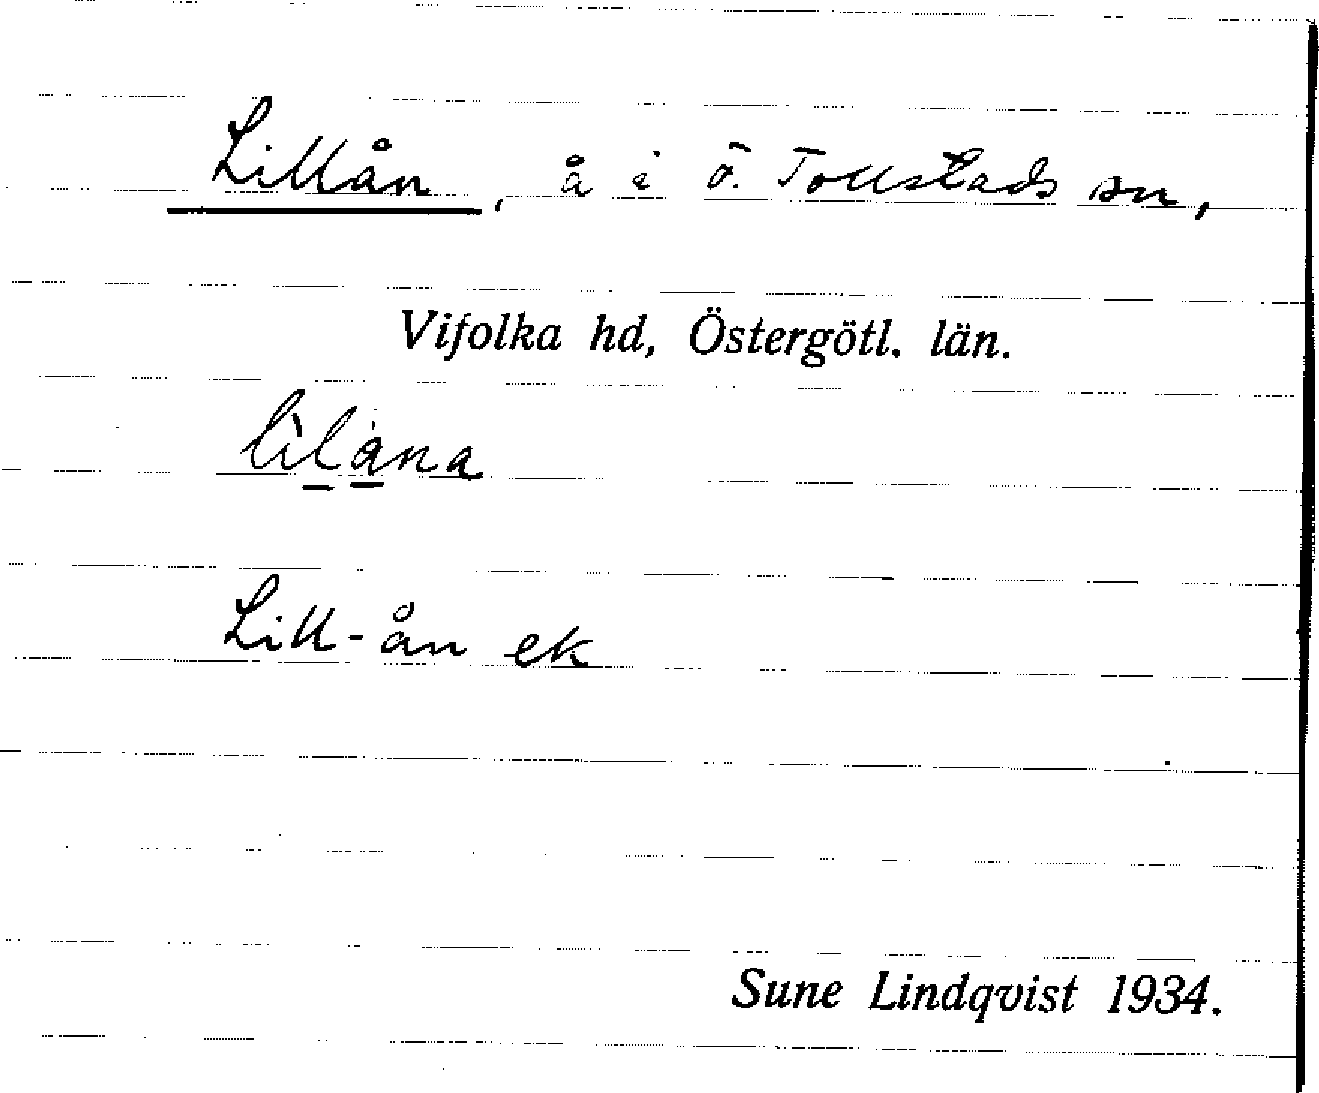 Lillån, å i Ö. Tollstads sn,
Vifolka hd, Östergötl. län.
lìl̠å̠na
Lill-ån ek
Sune Lindqvist 1934.